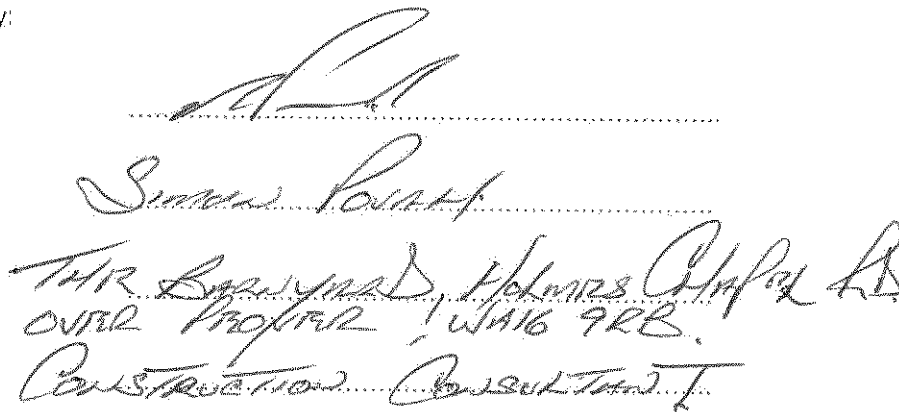 Simon Povah
The Barnyard, Holmes Chapel RD
OVER PEOVER, WA16 9RB.
CONSTRUCTION CONSULTANT